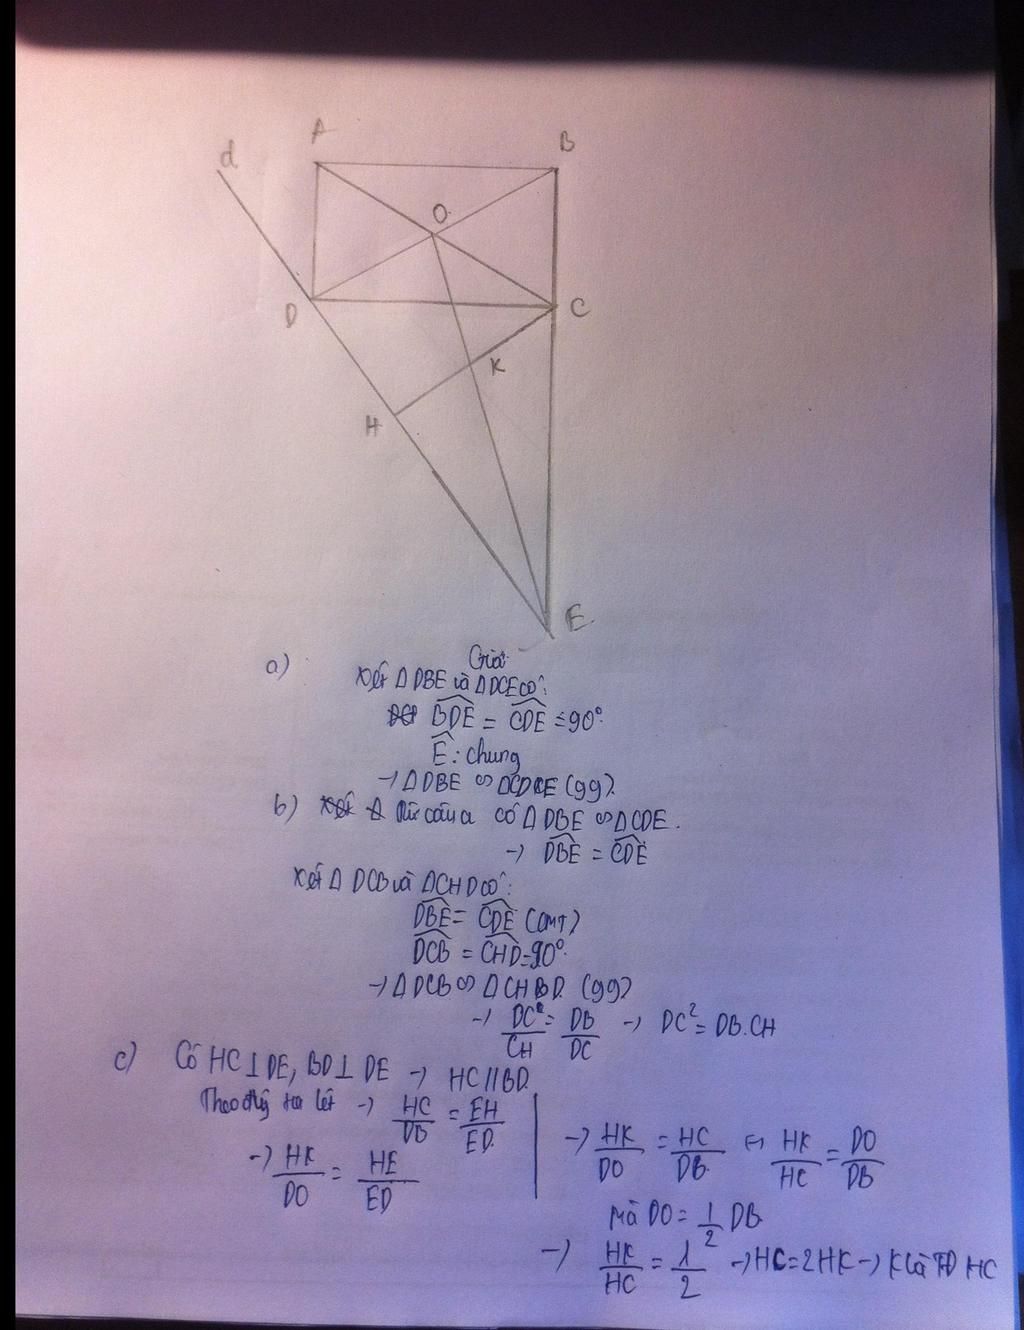 A
B
d
O
D
C
K
H
E
Giải
a)
Xét Δ DBE và Δ DCE có:
BDE = CDE = 90°
E : chung
→ Δ DBE ∽ ΔCDE (gg)
b) Từ câu a có Δ DBE ∽ ΔCDE.
→ DBE = CDE
Xét Δ DCB và ΔCHD có:
DBE = CDE (CMT)
DCB = CHD = 90°
→ Δ DCB ∽ ΔCHD (gg)
→ DC/CH = DB/DC → DC² = DB.CH
c) Có HC ⊥ DE, BD ⊥ DE → HC // BD
Theo định lý ta lét → HC/DB = EH/ED
→ HK/DO = HE/ED
→ HK/DO = HC/DB ↔ HK/HC = DO/DB
Mà DO = 1/2 DB
→ HK/HC = 1/2 → HC = 2HK → K là TĐ HC